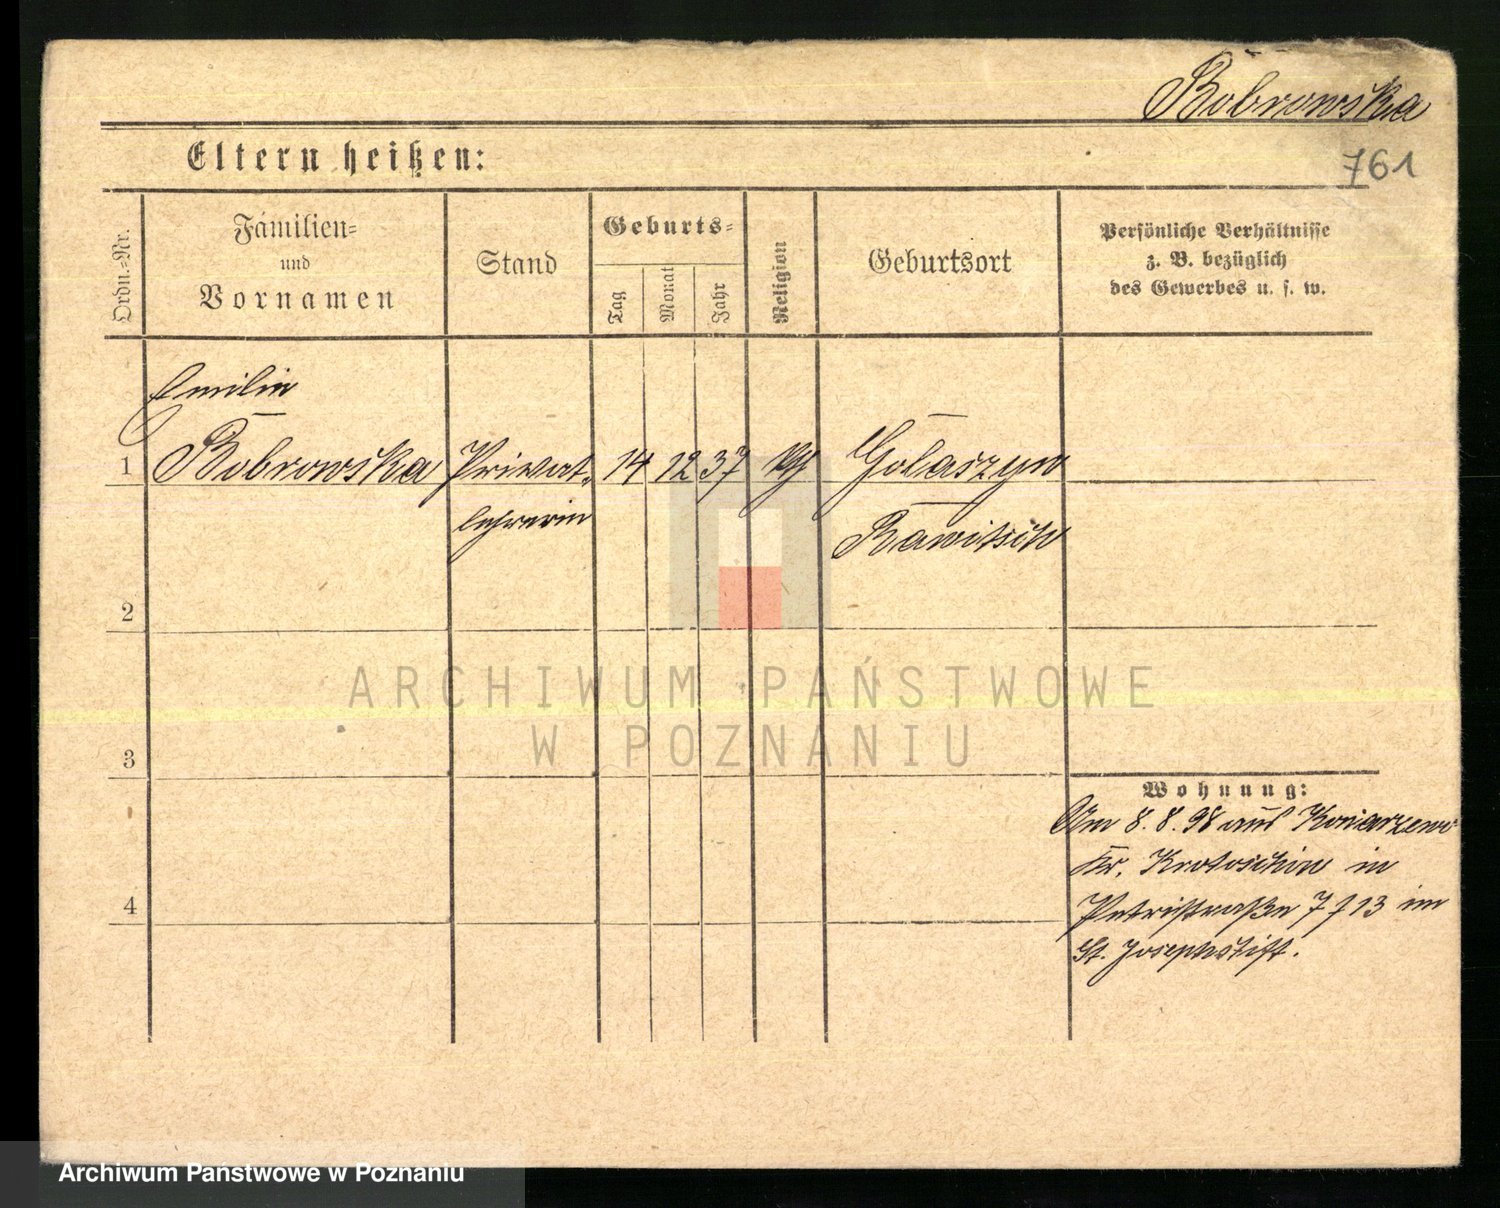 Bobrowska
Eltern heißen:
761
Ordn.-Nr.
Familien-
und
Vornamen
Stand
Geburts-
Tag
Monat
Jahr
Religion
Geburtsort
Persönliche Verhältnisse
z. B. bezüglich
des Gewerbes u. s. w.
Emilie
1 Bobrowska Privat- 14 12 37 Golaszyn
lehrerin Rawitsch
2
ARCHIWUM PAŃSTWOWE
W POZNANIU
3
Wohnung:
Am 8.8.98 aus Koniarzewo
Kr. Krotoschin in
4
Petristraße 7 f 13 im
St. Josephstift.
Archiwum Państwowe w Poznaniu